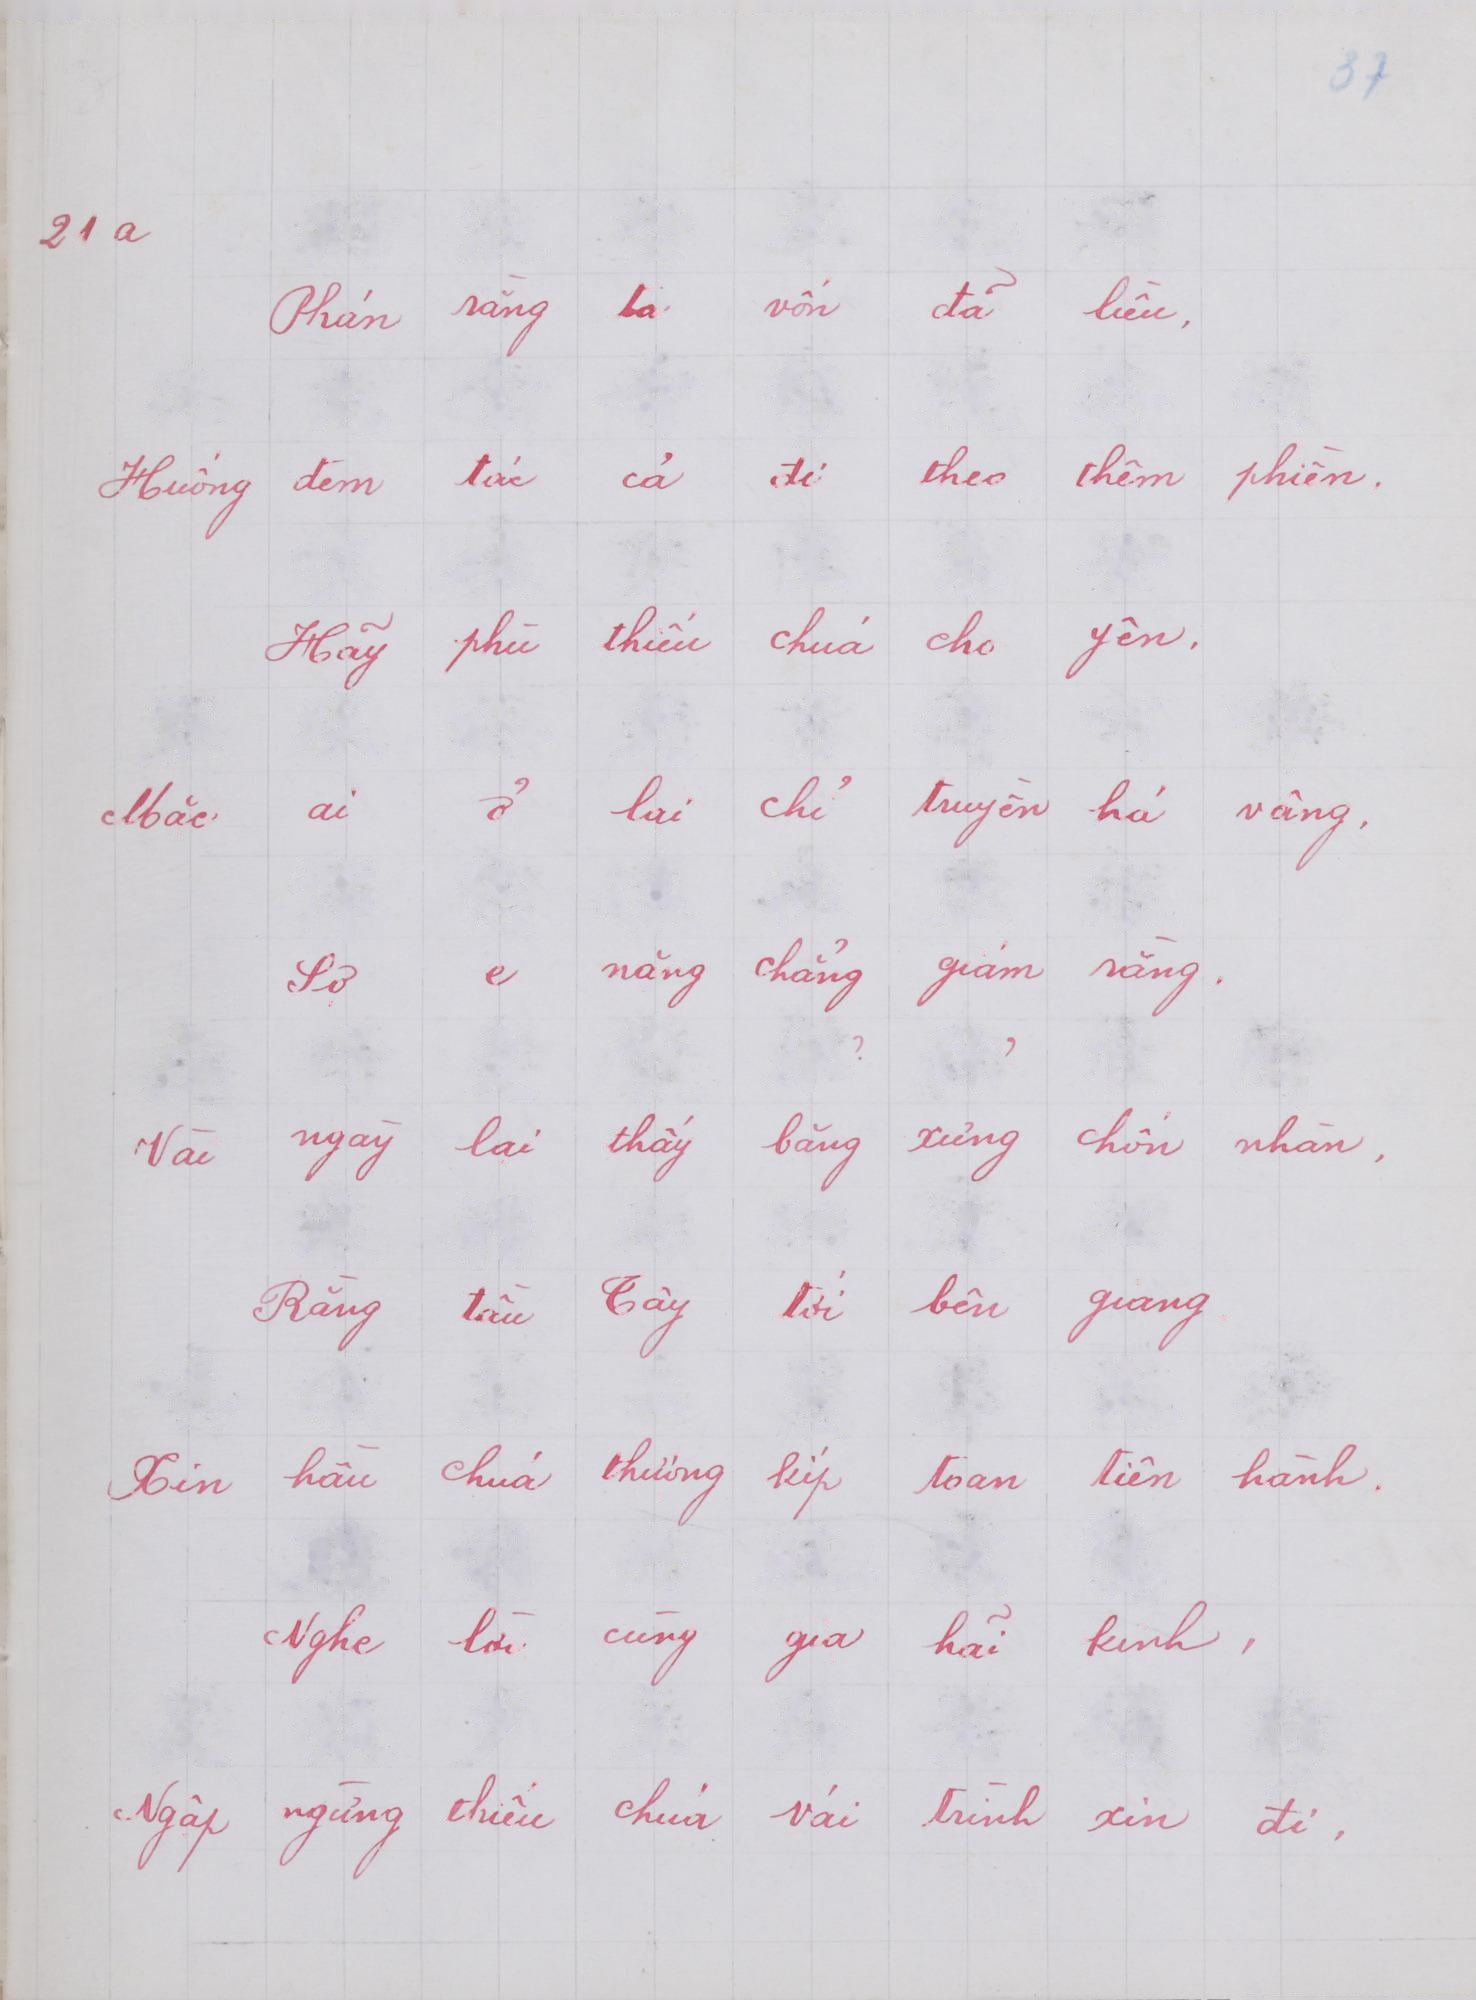 37
21 a
Phán rằng ta vốn đã liều,
Huống đem tác cả đi theo thêm phiền.
Hãy phù thiếu chuá cho yên,
Mặc ai ở lai chỉ truyền há vâng,
Sợ e năng chẳng giám rằng.
Vài ngaỳ lai thấy băng xưng chốn nhàn,
Rằng tầu Tây tới bên giang
Xin hầu chuá thượng kíp toan tiên hành.
Nghe lời cùng gia hãi kinh,
Ngâp ngừng thiếu chuá vái trình xin đi,